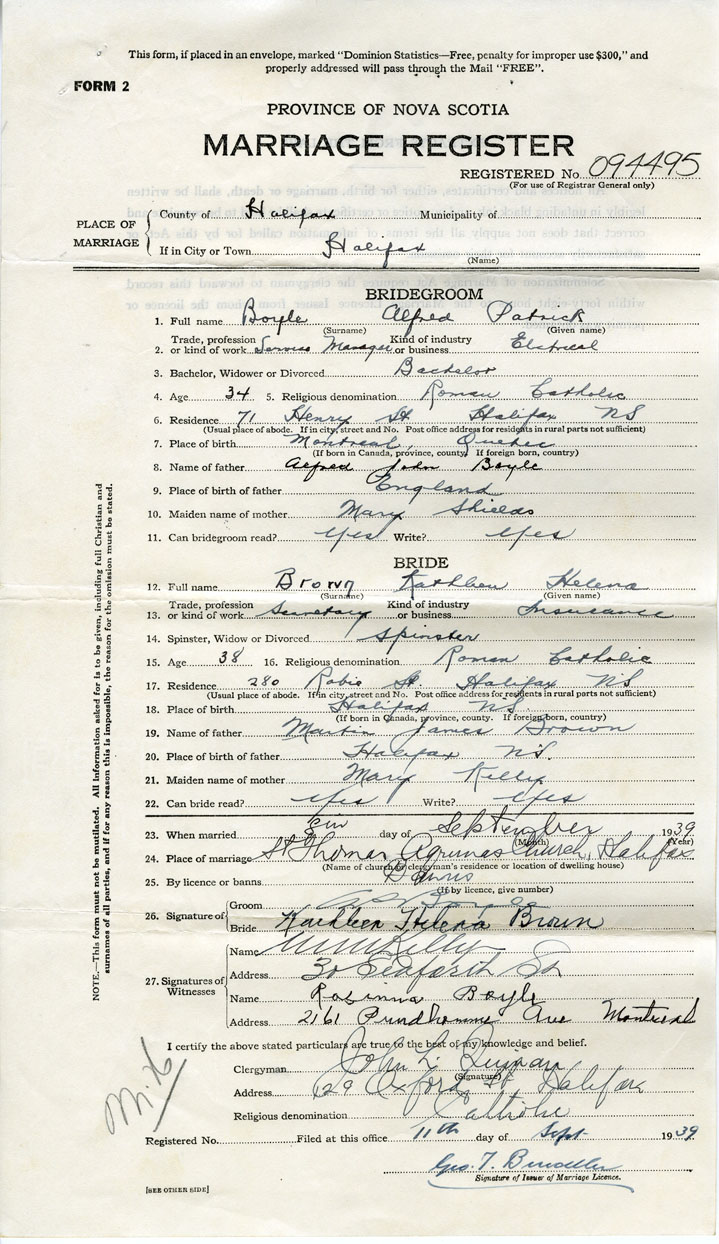 This form, if placed in an envelope, marked "Dominion Statistics—Free, penalty for improper use $300," and
properly addressed will pass through the Mail "FREE".
FORM 2
PROVINCE OF NOVA SCOTIA
MARRIAGE REGISTER
REGISTERED No. 094495
(For use of Registrar General only)
PLACE OF MARRIAGE
County of Halifax Municipality of
If in City or Town Halifax
(Name)
BRIDEGROOM
1. Full name Boyle Alfred Patrick
(Surname) (Given name)
Trade, profession Kind of industry
2. or kind of work Service Manager or business Electrical
3. Bachelor, Widower or Divorced Bachelor
4. Age 34 5. Religious denomination Roman Catholic
6. Residence 71 Henry St Halifax NS
(Usual place of abode. If in city, street and No. Post office address for residents in rural parts not sufficient)
7. Place of birth Montreal, Quebec
(If born in Canada, province, county. If foreign born, country)
8. Name of father Alfred John Boyle
9. Place of birth of father England
10. Maiden name of mother Mary Shields
11. Can bridegroom read? Yes Write? Yes
BRIDE
12. Full name Brown Kathleen Helena
(Surname) (Given name)
Trade, profession Kind of industry
13. or kind of work Secretary or business Insurance
14. Spinster, Widow or Divorced Spinster
15. Age 38 16. Religious denomination Roman Catholic
17. Residence 280 Robie St. Halifax NS
(Usual place of abode. If in city, street and No. Post office address for residents in rural parts not sufficient)
18. Place of birth Halifax N.S.
(If born in Canada, province, county. If foreign born, country)
19. Name of father Martin James Brown
20. Place of birth of father Halifax N.S.
21. Maiden name of mother Mary Kelly
22. Can bride read? Yes Write? Yes
23. When married day of September 1939
(Month) (Year)
24. Place of marriage St Thomas Aquinas Church, Halifax
(Name of church, clergyman's residence or location of dwelling house)
25. By licence or banns Banns
(If by licence, give number)
26. Signature of
Groom
Bride Kathleen Helena Brown
27. Signatures of Witnesses
Name Kelly
Address 30 Seaforth St
Name Rosinna Boyle
Address 2161 Prudhomme Ave Montreal
I certify the above stated particulars are true to the best of my knowledge and belief.
Clergyman John L. Quinan
(Signature)
Address 129 Oxford St Halifax
Religious denomination Catholic
Registered No. Filed at this office 11th day of Sept 1939
Geo. T.
Signature of Issuer of Marriage Licence.
[SEE OTHER SIDE]
NOTE.—This form must not be mutilated. All information asked for is to be given, including full Christian and
surnames of all parties, and if for any reason this is impossible, the reason for the omission must be stated.